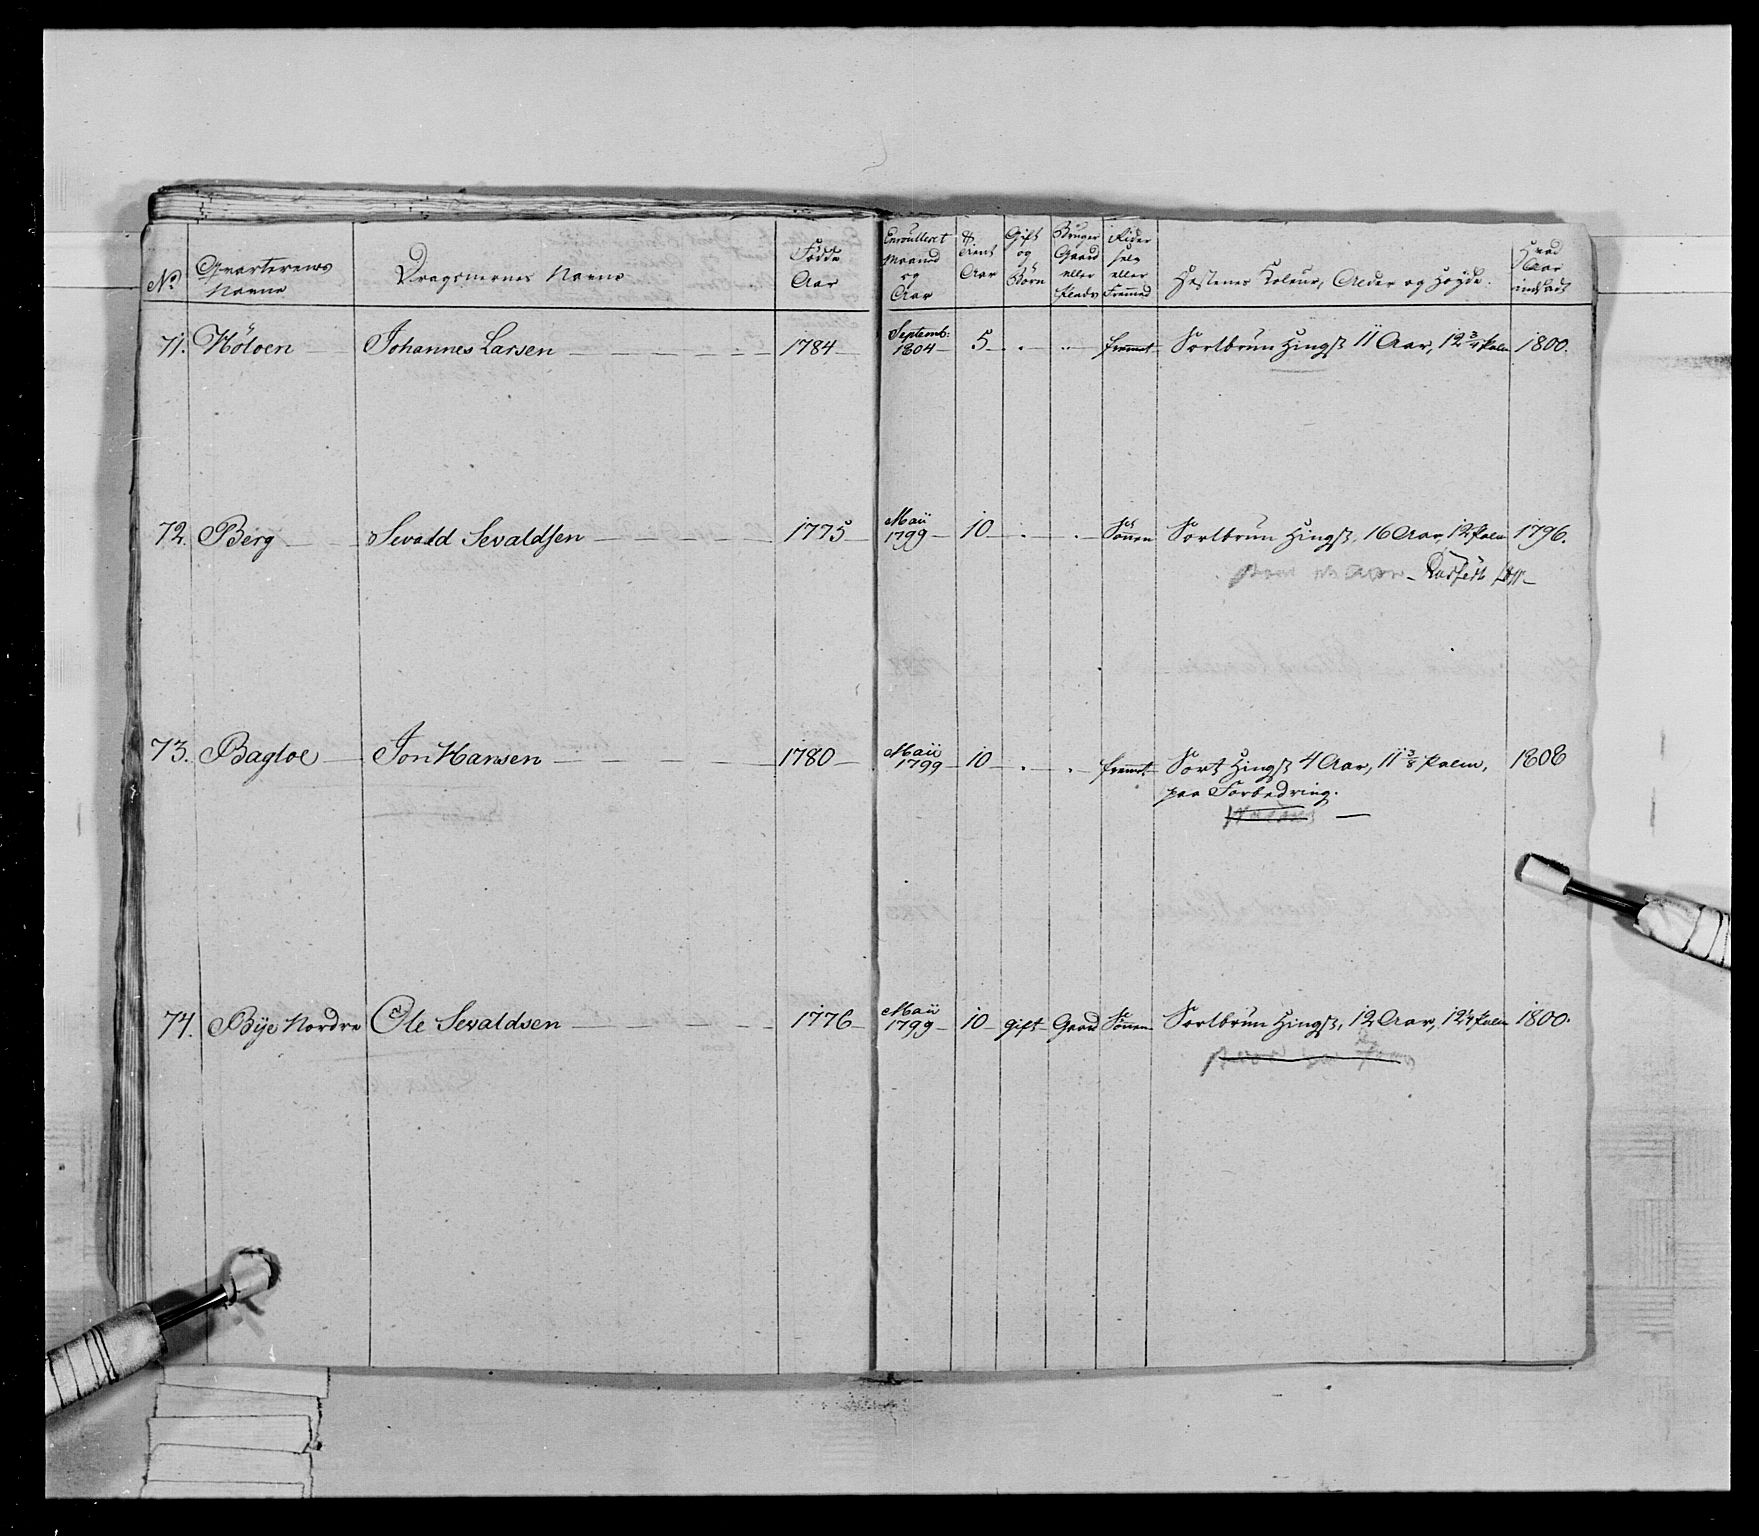 No Qvarterenes Navne
Dragonernes Navne
Födde Aar
Enroulleret Maaned og Aar
Tient Aar
Gift og Börn
Bruger Gaard eller Plads
Rider selv eller Fremmed
Hestenes Koleur, Alder og Höÿde.
Hvad Aar indsadt
71. Höloen Johannes Larsen 1784 Septemb: 1804 5 fremet Sortbrun Hingst 11 Aar, 12 3/4 Palm 1800.
72. Berg Sevald Sevaldsen 1775 Maii 1799 10 Sönnen Sortbrun Hingst, 16 Aar, 12 Palm 1796.
Kasseret
73. Bagloe Jon Hansen 1780 Maii 1799 10 fremet Sort Hingst 4 Aar, 11 3/8 Palm, 1808
paa Forbedring.
74. Bÿe Nordre Ole Sevaldsen 1776 Maii 1799 10 gift Gaard Sönnen Sortbrun Hingst, 12 Aar, 12 1/4 Palm 1800.